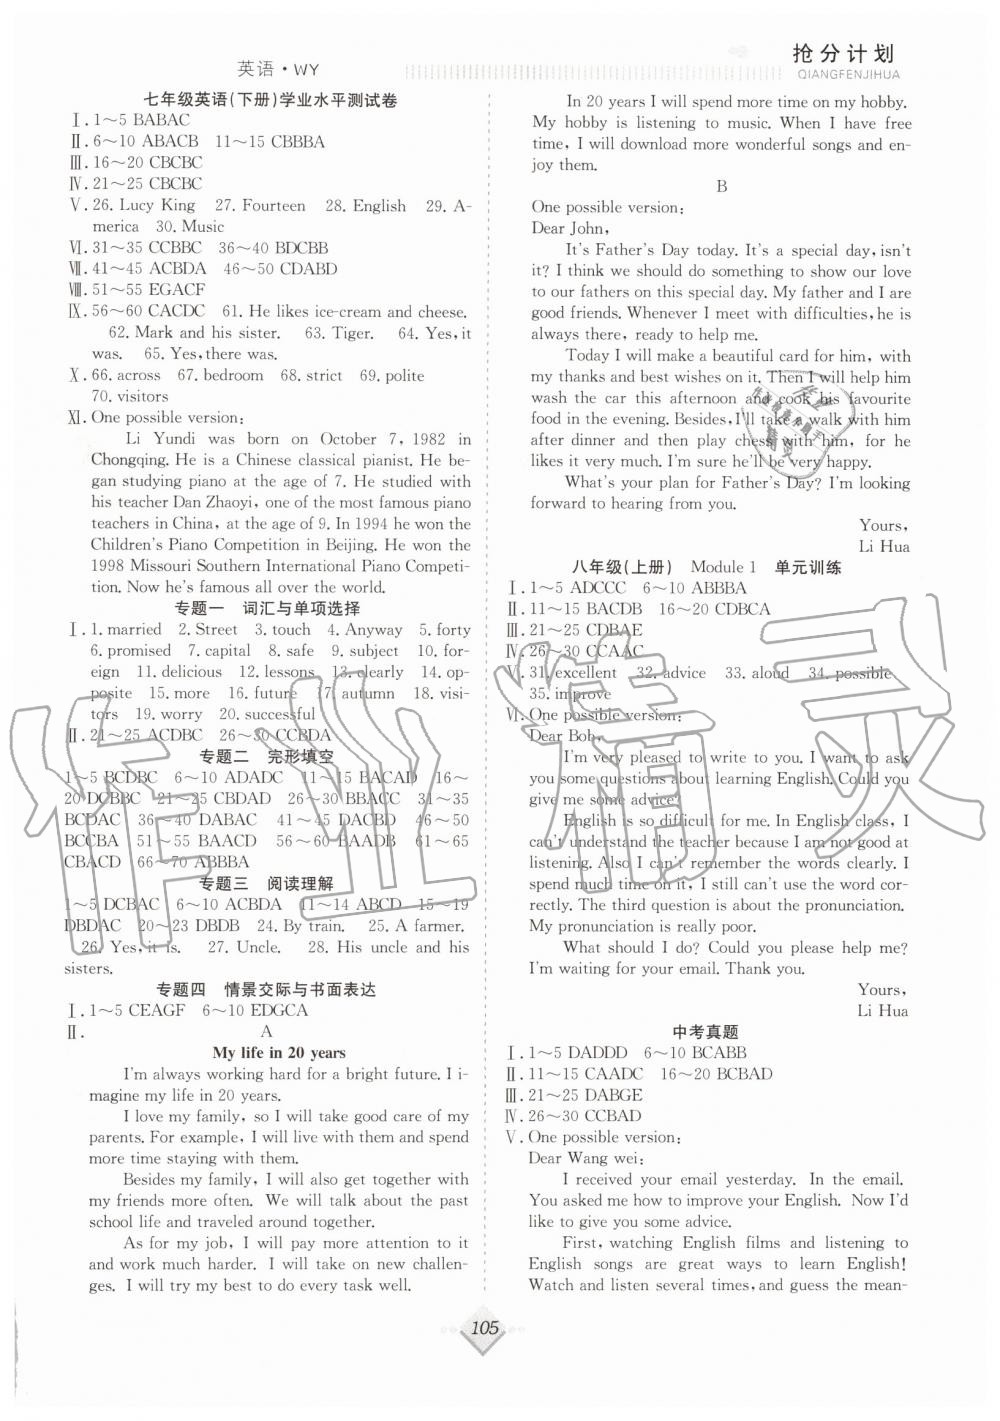 英语·WY
抢分计划
QIANGFENJIHUA
七年级英语(下册)学业水平测试卷
Ⅰ.1～5 BABAC
Ⅱ.6～10 ABACB 11～15 CBBBA
Ⅲ.16～20 CBCBC
Ⅳ.21～25 CBCBC
Ⅴ.26. Lucy King 27. Fourteen 28. English 29. A-
merica 30. Music
Ⅵ.31～35 CCBBC 36～40 BDCBB
Ⅶ.41～45 ACBDA 46～50 CDABD
Ⅷ.51～55 EGACF
Ⅸ.56～60 CACDC 61. He likes ice-cream and cheese.
62. Mark and his sister. 63. Tiger. 64. Yes, it
was. 65. Yes, there was.
Ⅹ.66. across 67. bedroom 68. strict 69. polite
70. visitors
Ⅺ.One possible version:
Li Yundi was born on October 7, 1982 in
Chongqing. He is a Chinese classical pianist. He be-
gan studying piano at the age of 7. He studied with
his teacher Dan Zhaoyi, one of the most famous piano
teachers in China, at the age of 9. In 1994 he won the
Children's Piano Competition in Beijing. He won the
1998 Missouri Southern International Piano Competi-
tion. Now he's famous all over the world.
专题一 词汇与单项选择
Ⅰ.1. married 2. Street 3. touch 4. Anyway 5. forty
6. promised 7. capital 8. safe 9. subject 10. for-
eign 11. delicious 12. lessons 13. clearly 14. op-
posite 15. more 16. future 17. autumn 18. visi-
tors 19. worry 20. successful
Ⅱ.21～25 ACDBC 26～30 CCBDA
专题二 完形填空
1～5 BCDBC 6～10 ADADC 11～15 BACAD 16～
20 DCBBC 21～25 CBDAD 26～30 BBACC 31～35
BCDAC 36～40 DABAC 41～45 DACBD 46～50
BCCBA 51～55 BAACD 56～60 BAADB 61～65
CBACD 66～70 ABBBA
专题三 阅读理解
1～5 DCBAC 6～10 ACBDA 11～14 ABCD 15～19
DBDAC 20～23 DBDB 24. By train. 25. A farmer.
26. Yes, it is. 27. Uncle. 28. His uncle and his
sisters.
专题四 情景交际与书面表达
Ⅰ.1～5 CEAGF 6～10 EDGCA
Ⅱ. A
My life in 20 years
I'm always working hard for a bright future. I i-
magine my life in 20 years.
I love my family, so I will take good care of my
parents. For example, I will live with them and spend
more time staying with them.
Besides my family, I will also get together with
my friends more often. We will talk about the past
school life and traveled around together.
As for my job, I will pay more attention to it
and work much harder. I will take on new challen-
ges. I will try my best to do every task well.
In 20 years I will spend more time on my hobby.
My hobby is listening to music. When I have free
time, I will download more wonderful songs and en-
joy them.
B
One possible version:
Dear John,
It's Father's Day today. It's a special day, isn't
it? I think we should do something to show our love
to our fathers on this special day. My father and I are
good friends. Whenever I meet with difficulties, he is
always there, ready to help me.
Today I will make a beautiful card for him, with
my thanks and best wishes on it. Then I will help him
wash the car this afternoon and cook his favourite
food in the evening. Besides, I'll take a walk with him
after dinner and then play chess with him, for he
likes it very much. I'm sure he'll be very happy.
What's your plan for Father's Day? I'm looking
forward to hearing from you.
Yours,
Li Hua
八年级(上册) Module 1 单元训练
Ⅰ.1～5 ADCCC 6～10 ABBBA
Ⅱ.11～15 BACDB 16～20 CDBCA
Ⅲ.21～25 CDBAE
Ⅳ.26～30 CCAAC
Ⅴ.31. excellent 32. advice 33. aloud 34. possible
35. improve
Ⅵ.One possible version:
Dear Bob,
I'm very pleased to write to you. I want to ask
you some questions about learning English. Could you
give me some advice?
English is so difficult for me. In English class, I
can't understand the teacher because I am not good at
listening. Also I can't remember the words clearly. I
spend much time on it, I still can't use the word cor-
rectly. The third question is about the pronunciation.
My pronunciation is really poor.
What should I do? Could you please help me?
I'm waiting for your email. Thank you.
Yours,
Li Hua
中考真题
Ⅰ.1～5 DADDD 6～10 BCABB
Ⅱ.11～15 CAADC 16～20 BCBAD
Ⅲ.21～25 DABGE
Ⅳ.26～30 CCBAD
Ⅴ.One possible version:
Dear Wang wei:
I received your email yesterday. In the email.
You asked me how to improve your English. Now I'd
like to give you some advice.
First, watching English films and listening to
English songs are great ways to learn English!
Watch and listen several times, and guess the mean-
105
作业精灵